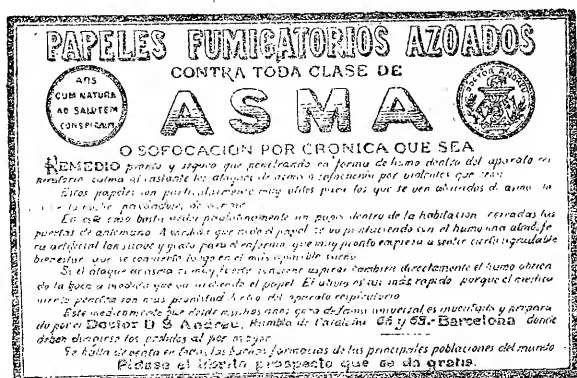 PAPELES FUMIGATORIOS AZOADOS
CONTRA TODA CLASE DE
ARS
CUM NATURA
AD SALUTEM
CONSPIRANS
ASMA
DOCTOR ANDREU
O SOFOCACION POR CRONICA QUE SEA
REMEDIO pronto y seguro que penetrando en forma de humo dentro del aparato res
piratorio calma al instante los ataques de asma o sofocación por violentos que sean
Estos papeles son particularmente muy útiles para los que se ven atacados de asma
En este caso basta un papel dentro de la habitación cerradas las
puertas de antemano. A medida que todo el papel se va produciendo con el humo una atmósfe
ra artificial tan suave y grata para el enfermo, que muy pronto empieza a sentir cierto agradable
bienestar que se convierte luego en el más apacible sueño
Si el ataque de asma es muy fuerte conviene aspirar también directamente el humo
de la boca a medida que va ardiendo el papel. El alivio es más rápido porque el medica
mento penetra con más prontitud dentro del aparato respiratorio
Este medicamento que desde muchos años goza de fama universal es inventado y prepara
do por el Doctor D. S. Andreu, Rambla de Cataluña 66 y 68.-Barcelona donde
deben dirigirse los pedidos al por mayor
Se halla de venta en todas las buenas farmacias de las principales poblaciones del mundo
Pídase el librito prospecto que se da gratis.